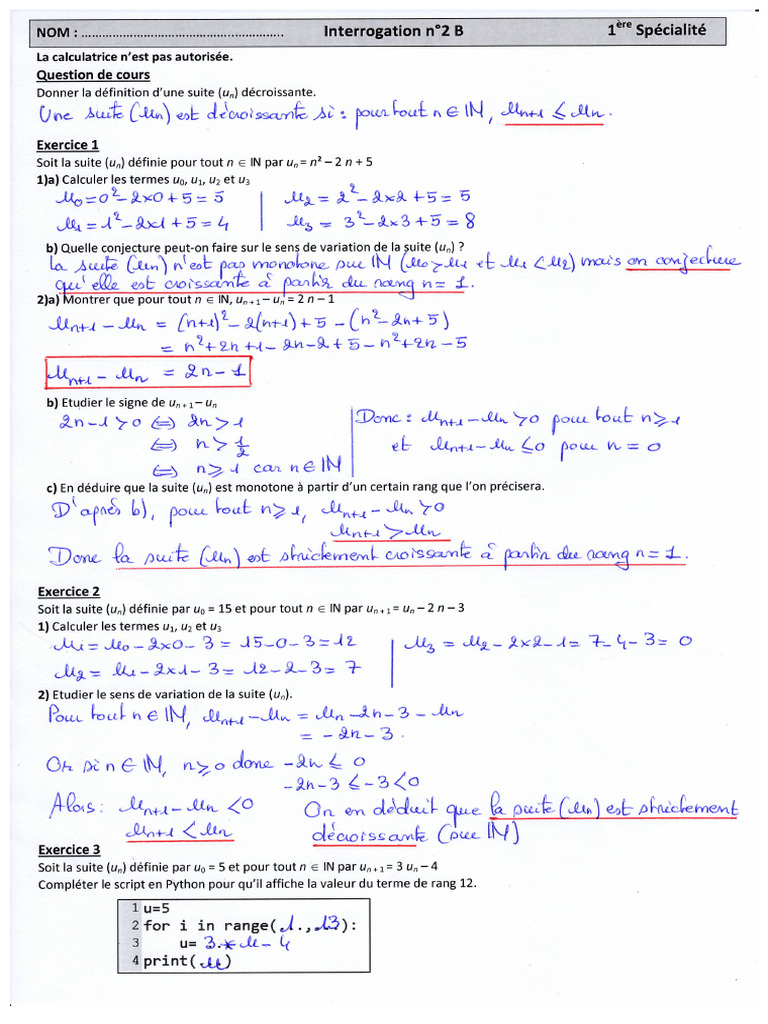 NOM : ………………………………………………. Interrogation n°2 B 1ère Spécialité
La calculatrice n'est pas autorisée.
Question de cours
Donner la définition d'une suite (un) décroissante.
Une suite (un) est décroissante si : pour tout n ∈ IN, un+1 ≤ un.
Exercice 1
Soit la suite (un) définie pour tout n ∈ IN par un = n² – 2 n + 5
1)a) Calculer les termes u0, u1, u2 et u3
u0 = 0² – 2×0 + 5 = 5 | u2 = 2² – 2×2 + 5 = 5
u1 = 1² – 2×1 + 5 = 4 | u3 = 3² – 2×3 + 5 = 8
b) Quelle conjecture peut-on faire sur le sens de variation de la suite (un) ?
La suite (un) n'est pas monotone sur IN (u0 > u1 et u1 < u2) mais on conjecture
qu'elle est croissante à partir du rang n = 1.
2)a) Montrer que pour tout n ∈ IN, un + 1 – un = 2 n – 1
un+1 – un = (n+1)² – 2(n+1) + 5 – (n² – 2n + 5)
= n² + 2n + 1 – 2n – 2 + 5 – n² + 2n – 5
un+1 – un = 2n – 1
b) Etudier le signe de un + 1 – un
2n – 1 > 0 ⇔ 2n > 1 | Donc : un+1 – un > 0 pour tout n ≥ 1
⇔ n > 1/2 | et un+1 – un ≤ 0 pour n = 0
⇔ n ≥ 1 car n ∈ IN
c) En déduire que la suite (un) est monotone à partir d'un certain rang que l'on précisera.
D'après b), pour tout n ≥ 1, un+1 – un > 0
un+1 > un
Donc la suite (un) est strictement croissante à partir du rang n = 1.
Exercice 2
Soit la suite (un) définie par u0 = 15 et pour tout n ∈ IN par un + 1 = un – 2 n – 3
1) Calculer les termes u1, u2 et u3
u1 = u0 – 2×0 – 3 = 15 – 0 – 3 = 12 | u3 = u2 – 2×2 – 1 = 7 – 4 – 3 = 0
u2 = u1 – 2×1 – 3 = 12 – 2 – 3 = 7
2) Etudier le sens de variation de la suite (un).
Pour tout n ∈ IN, un+1 – un = un – 2n – 3 – un
= – 2n – 3.
Or si n ∈ IN, n ≥ 0 donc – 2n ≤ 0
– 2n – 3 ≤ – 3 < 0
Alors : un+1 – un < 0 On en déduit que la suite (un) est strictement
un+1 < un décroissante (sur IN)
Exercice 3
Soit la suite (un) définie par u0 = 5 et pour tout n ∈ IN par un + 1 = 3 un – 4
Compléter le script en Python pour qu'il affiche la valeur du terme de rang 12.
1 u=5
2 for i in range(1.,13):
3 u= 3.* u – 4
4 print(u)